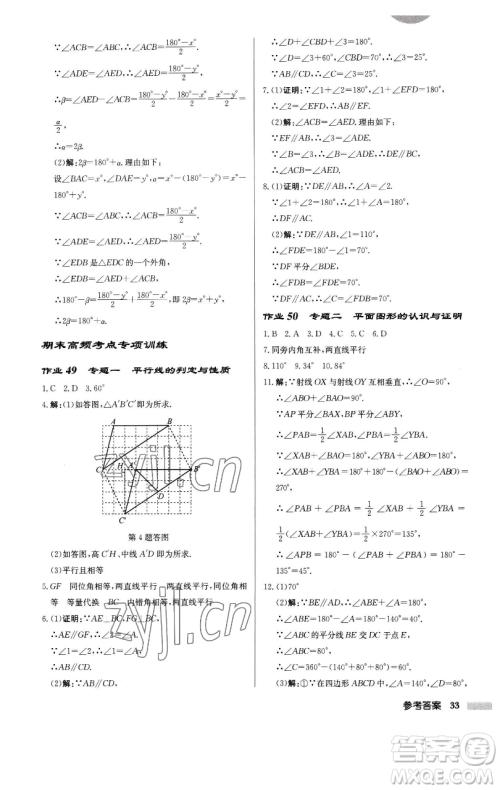 ∵∠ACB=∠ABC,∴∠ACB=(180°-x°)/2.
∵∠ADE=∠AED,∴∠AED=(180°-y°)/2.
∴β=∠AED-∠ACB=(180°-y°)/2-(180°-x°)/2=
α/2.
∴α=2β.
(2)解:2β-180°=α.理由如下:
设∠BAC=x°,∠DAE=y°,则α=x°-y°.
∵∠ACB=∠ABC,∴∠ACB=(180°-x°)/2.
∵∠ADE=∠AED,∴∠AED=(180°-y°)/2.
∵∠EDB是∠EDC的一个外角,
∴∠EDB=∠AED+∠ACB.
∴180°-β=(180°-y°)/2+(180°-x°)/2.
∴2β-180°=α.
期末高频考点专项训练
作业 49 专题一 平行线的判定与性质
1.C 2.D 3.60°
4.解:(1)如答图,△A'B'C'即为所求.
A B C H A' B' D C'
第4题答图
(2)如答图,高C'H、中线A'D即为所求.
(3)平行且相等
5.GF 同位角相等,两直线平行 两直线平行,内错角相等 等量代换 BC 内错角相等,两直线平行
6.(1)证明:∵AE⊥BC,FG⊥BC,
∴AE∥GF.∴∠2=∠A.
∵∠1=∠2,∴∠1=∠A.
∴AB∥CD.
(2)解:∵AB∥CD,
∴∠D+∠CBD+∠3=180°.
∵∠D=∠3+60°,∠CBD=70°,
∴∠3=25°.
7.(1)证明:∵∠1+∠2=180°,∠1+∠DFE=180°,
∴∠2=∠DFE.∴AB∥EF.
(2)解:∠ACB=∠AED.理由如下:
∵AB∥EF,∴∠3=∠ADE.
∵∠3=∠B,∴∠B=∠ADE.
∴DE∥BC.∴∠ACB=∠AED.
8.(1)证明:∵DE∥AB,∴∠A=∠2.
∵∠1=∠A,∴∠1=∠2.
∴DF∥AC.
(2)解:∵DE∥AB,∠1=110°,
∴∠FDE=180°-∠1=70°.
∵DF平分∠BDE,∴∠FDB=70°.
∵DF∥AC,∴∠C=∠FDB=70°.
作业 50 专题二 平面图形的认识与证明
1.B 2.A 3.D 4.D 5.C 6.B
7.同旁内角互补,两直线平行
8.110° 9.34° 10.84°
11.解:∵射线OX与射线OY互相垂直,∴∠XOY=90°.
∴∠OAB+∠OBA=90°.
∵AP平分∠XAB,BP平分∠YBA,
∴∠PAB=1/2∠XAB,∠PBA=1/2∠YBA.
∴∠PAB+∠PBA=1/2∠XAB+1/2∠YBA=
1/2(∠XAB+∠YBA)=135°.
∴∠P=180°-(∠PAB+∠PBA)=45°.
12.(1)70°
(2)解:∵BE∥AD,
∴∠ABE=180°-∠A=40°.
∵∠ABC的平分线BE交DC于点E,
∴∠ABC=80°.
∴∠C=360°-(140°+80°+80°)=60°.
(3)解:①∵在四边形ABCD中,∠A=140°,∠D=80°,
参考答案 33
zyjl.cn